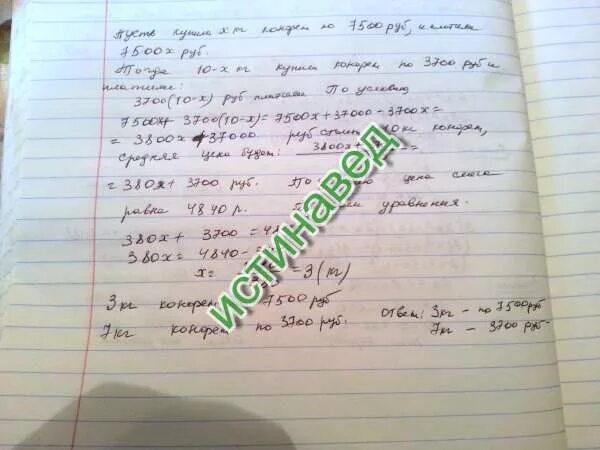 Пусть купили x кг конфет по 7500 руб, и платили
7500x руб.
Тогда 10-x кг купили конфет по 3700 руб и
платили:
3700(10-x) руб платили По условию
7500x+ 3700(10-x)= 7500x+37000-3700x=
= 3800x +37000 руб стоит кг конфет,
Средняя цена будет: 3800x+ =
= 380x+ 3700 руб. цена смеси
равна 4840 р. уравнения.
380x+ 3700 =
380x= 4840-
x= =3(кг)
3 кг конфет 7500 руб
7 кг конфет по 3700 руб.
Ответ: 3кг - по 7500руб
7кг - 3700 руб-
ИСТИНАВЕД